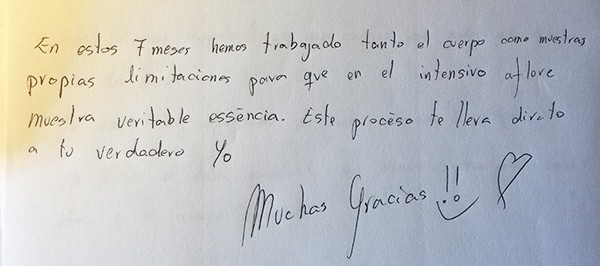 En estos 7 meses hemos trabajado tanto el cuerpo como muestras
propias limitaciones para que en el intensivo aflore
muestra veritable essència. Este procèso te lleva directo
a tu verdadero Yo
Muchas Gracias!!